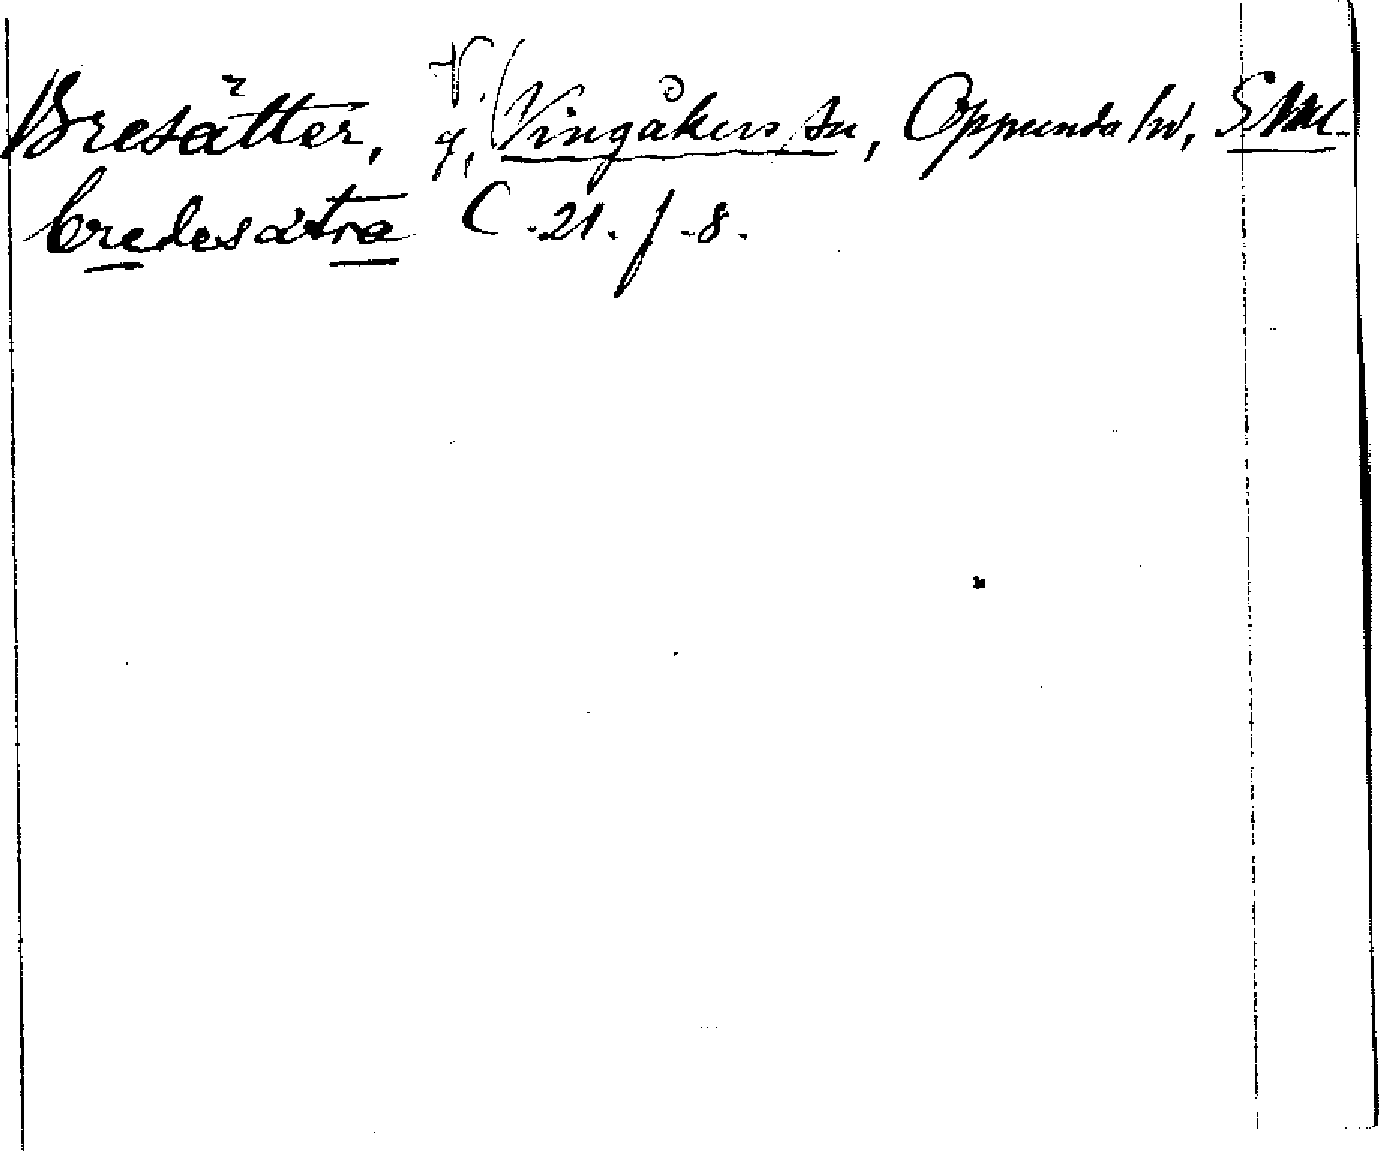 V.
Bresätter, g, (Vingåkers sn, Oppunda hd, Sdml.
bredesätra C. 21. f. 8.